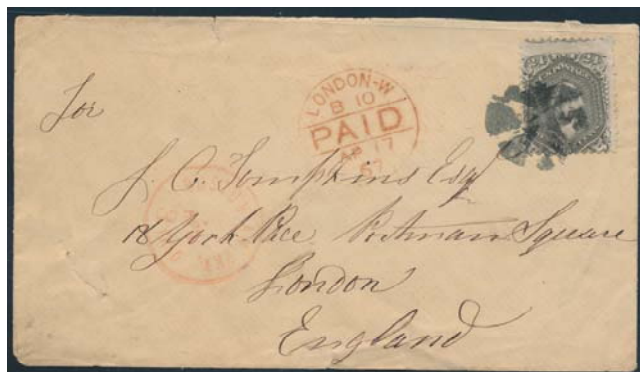 LONDON-W
B 10
PAID
AP 17
67
For
Tompkins Esq
18 York Place Portman Square
London
England
24